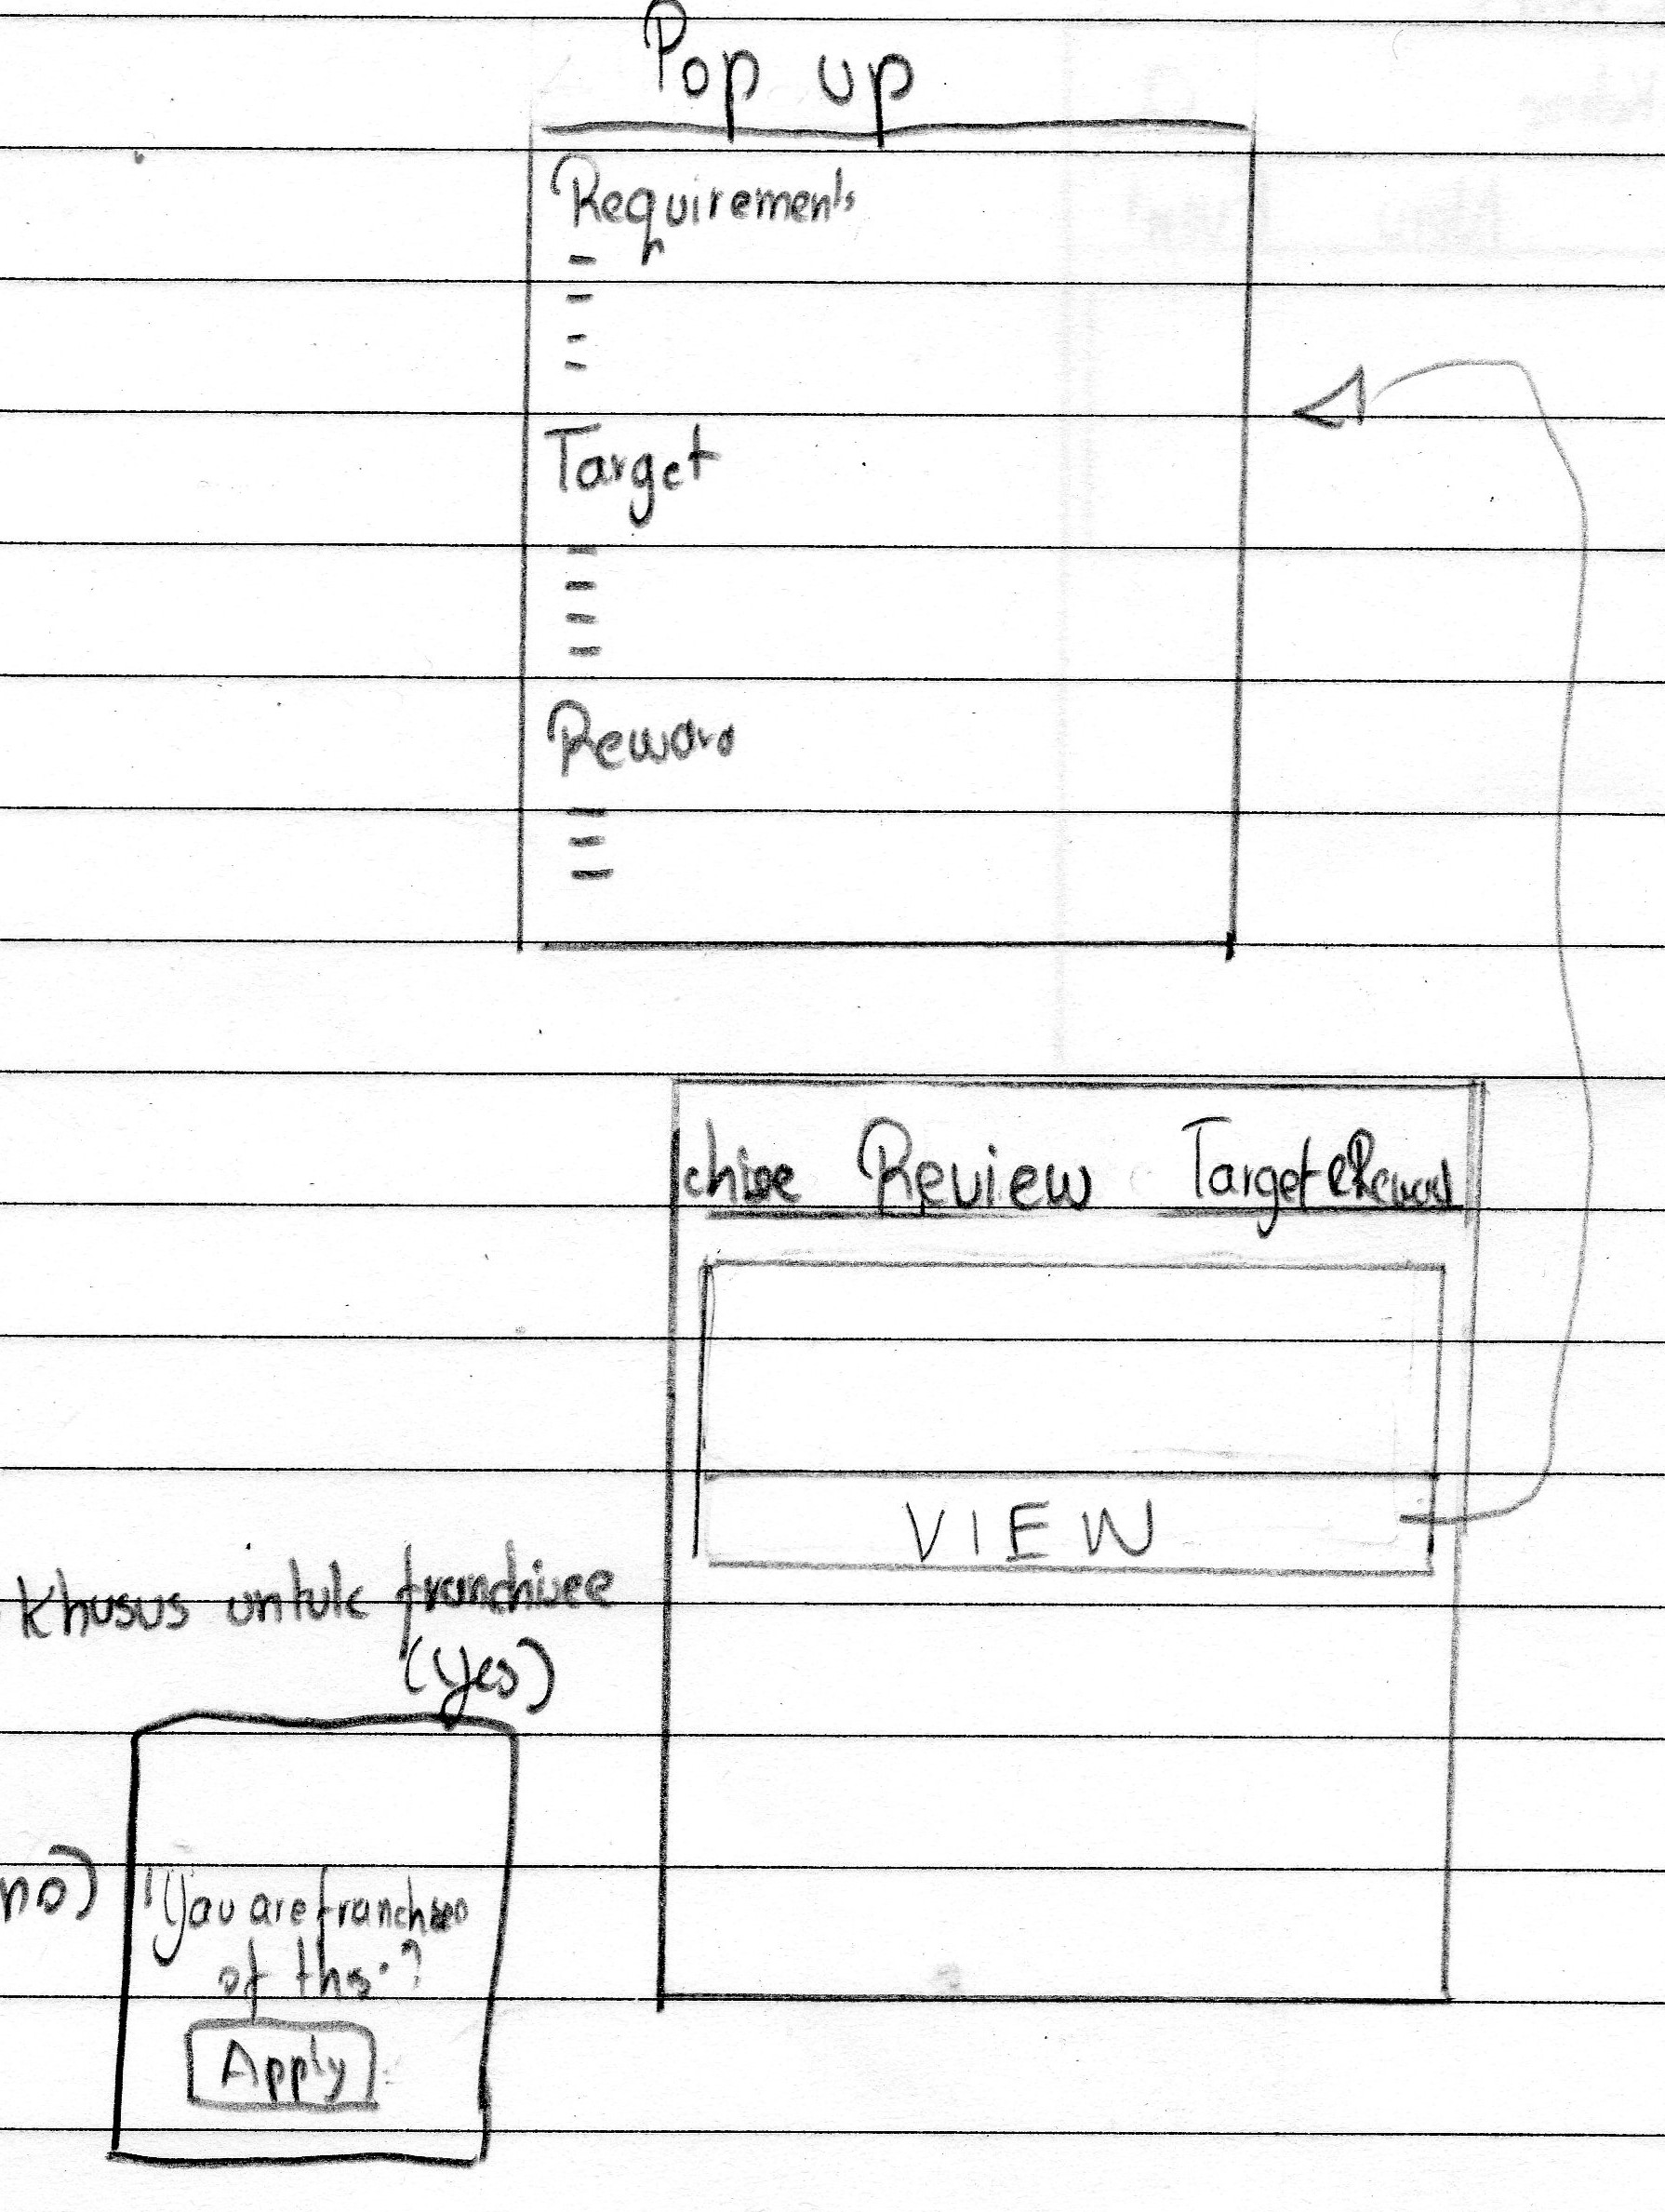 Pop up
Requirements
-
-
-
-
Target
-
-
-
-
Reward
-
-
-
chise Review Target & Reward
VIEW
Khusus untuk franchisee
(yes)
no)
You are franchisee
of ths?
Apply